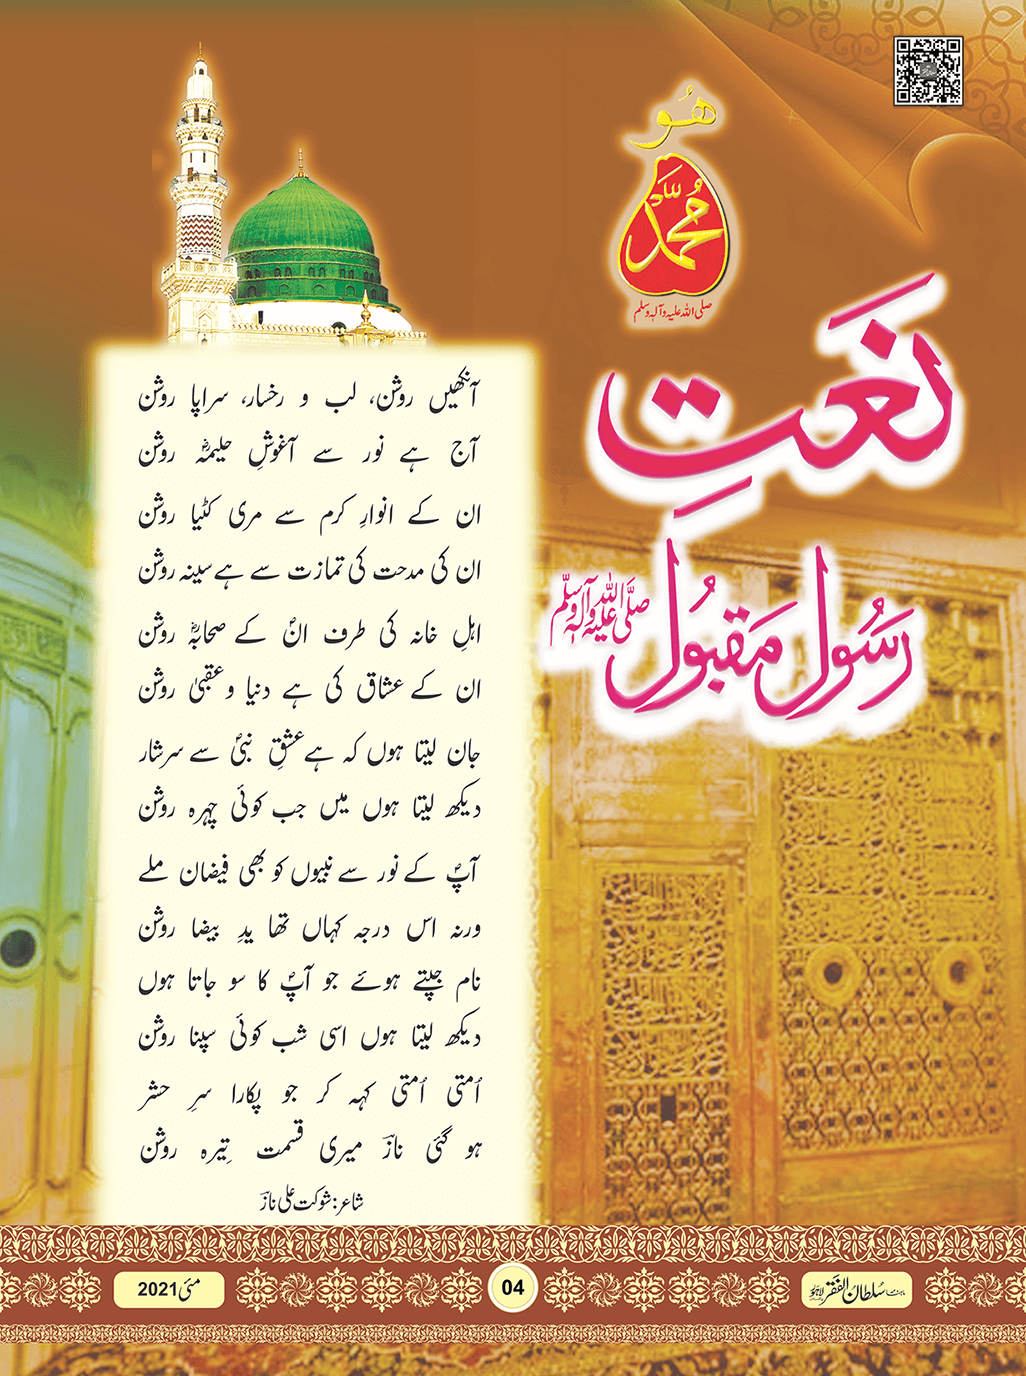 ھُو
مُحَمَّد
صلی اللہ علیہ وآلہٖ وسلم
نعَتِ
رسُولِ مَقبُول صلَّی اللہ علیہ وآلہٖ وسلّم
آنکھیں روشن، لب و رخسار، سراپا روشن
آج ہے نور سے آغوشِ حلیمہؓ روشن
ان کے انوارِ کرم سے مری کٹیا روشن
ان کی مدحت کی تمازت سے ہے سینہ روشن
اہلِ خانہ کی طرف انؐ کے صحابہؓ روشن
ان کے عشاق کی ہے دنیا و عقبیٰ روشن
جان لیتا ہوں کہ ہے عشقِ نبیؐ سے سرشار
دیکھ لیتا ہوں میں جب کوئی چہرہ روشن
آپؐ کے نور سے نبیوں کو بھی فیضان ملے
ورنہ اس درجہ کہاں تھا یدِ بیضا روشن
نام جپتے ہوئے جو آپؐ کا سو جاتا ہوں
دیکھ لیتا ہوں اسی شب کوئی سپنا روشن
اُمتی اُمتی کہہ کر جو پکارا سرِ حشر
ہو گئی نازؔ میری قسمت تِیرہ روشن
شاعر: شوکت علی نازؔ
ماہنامہ سُلطان الفقر لاہور
04
مئی 2021